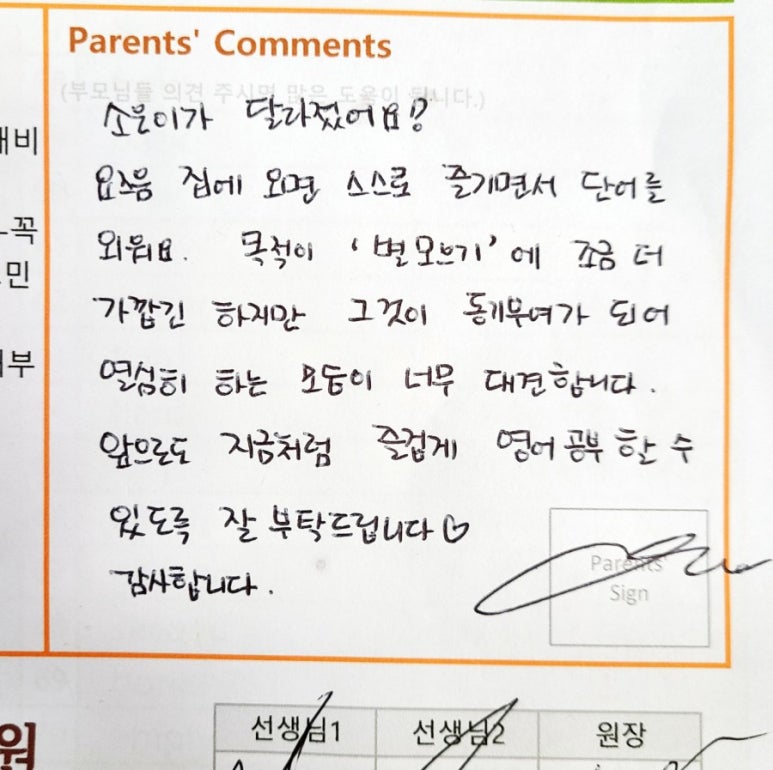 Parents' Comments
(부모님들 의견 주시면 많은 도움이 됩니다.)
소은이가 달라졌어요?
요즈음 집에 오면 스스로 즐기면서 단어를
외워요. 목적이 '별모으기'에 조금 더
가깝긴 하지만 그것이 동기부여가 되어
열심히 하는 모습이 너무 대견합니다.
앞으로도 지금처럼 즐겁게 영어 공부 할 수
있도록 잘 부탁드립니다♡
감사합니다.
Parents'
Sign
선생님1 선생님2 원장